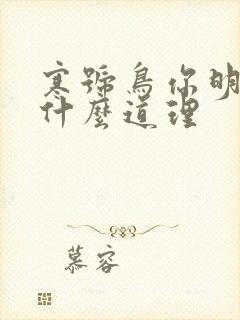 寒號鳥你明
什麼道理
慕容